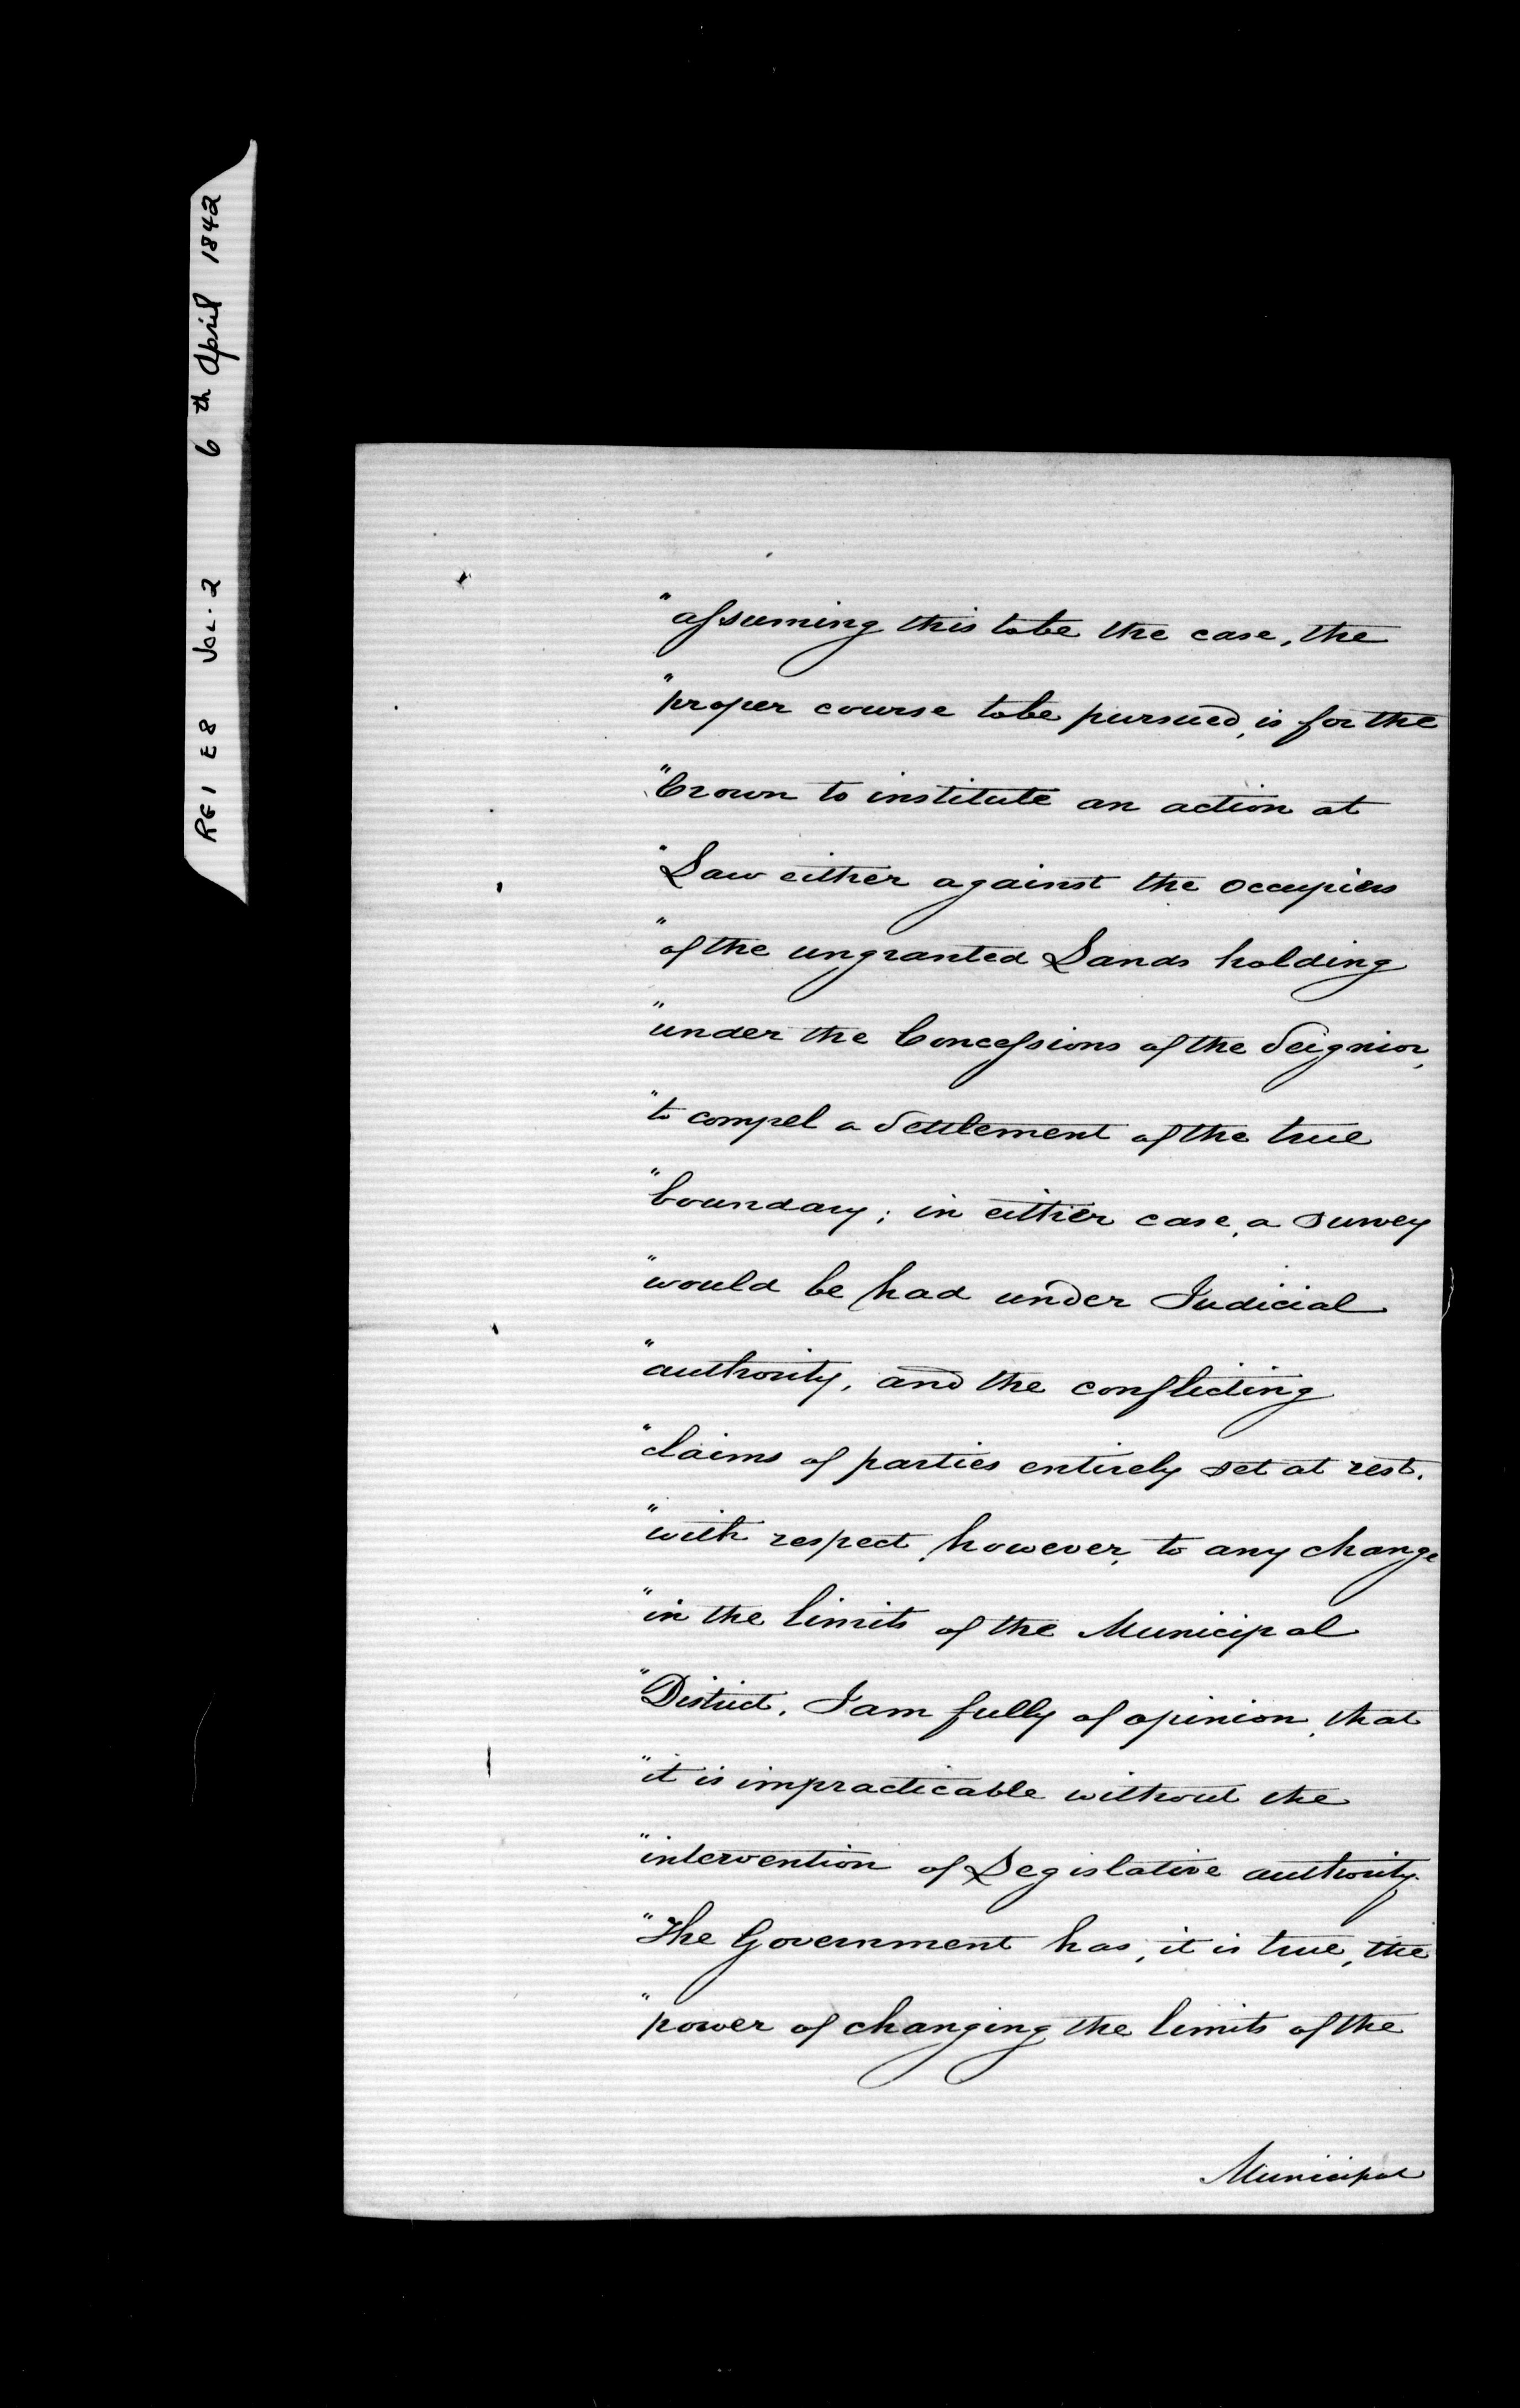 RG1 E8 Vol. 2 6th April 1842
"assuming this to be the case, the
"proper course to be pursued, is for the
"Crown to institute an action at
"Law either against the Occupiers
"of the ungranted Lands holding
"under the Concessions of the Seignior,
"to compel a Settlement of the true
"boundary; in either case, a survey
"would be had under Judicial
"authority, and the conflicting
"claims of parties entirely set at rest.
"with respect, however, to any change
"in the limits of the Municipal
"District. I am fully of opinion, that
"it is impracticable without the
"intervention of Legislative authority.
"The Government has, it is true, the
"power of changing the limits of the
Municipal